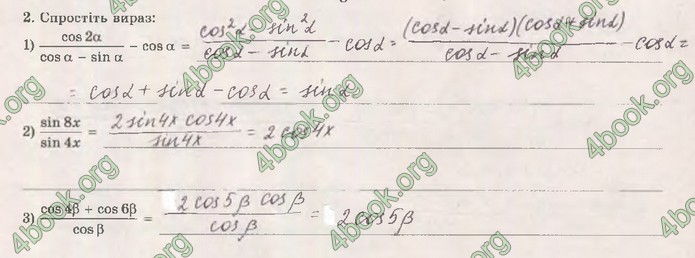 2. Спростіть вираз:
1) cos 2α / (cos α − sin α) − cos α = (cos²α − sin²α) / (cosα − sinα) − cosα = (cosα − sinα)(cosα + sinα) / (cosα − sinα) − cosα =
= cosα + sinα − cosα = sinα
2) sin 8x / sin 4x = 2 sin4x cos4x / sin4x = 2 cos4x
3) (cos 4β + cos 6β) / cos β = 2 cos5β cosβ / cosβ = 2 cos5β
4book.org